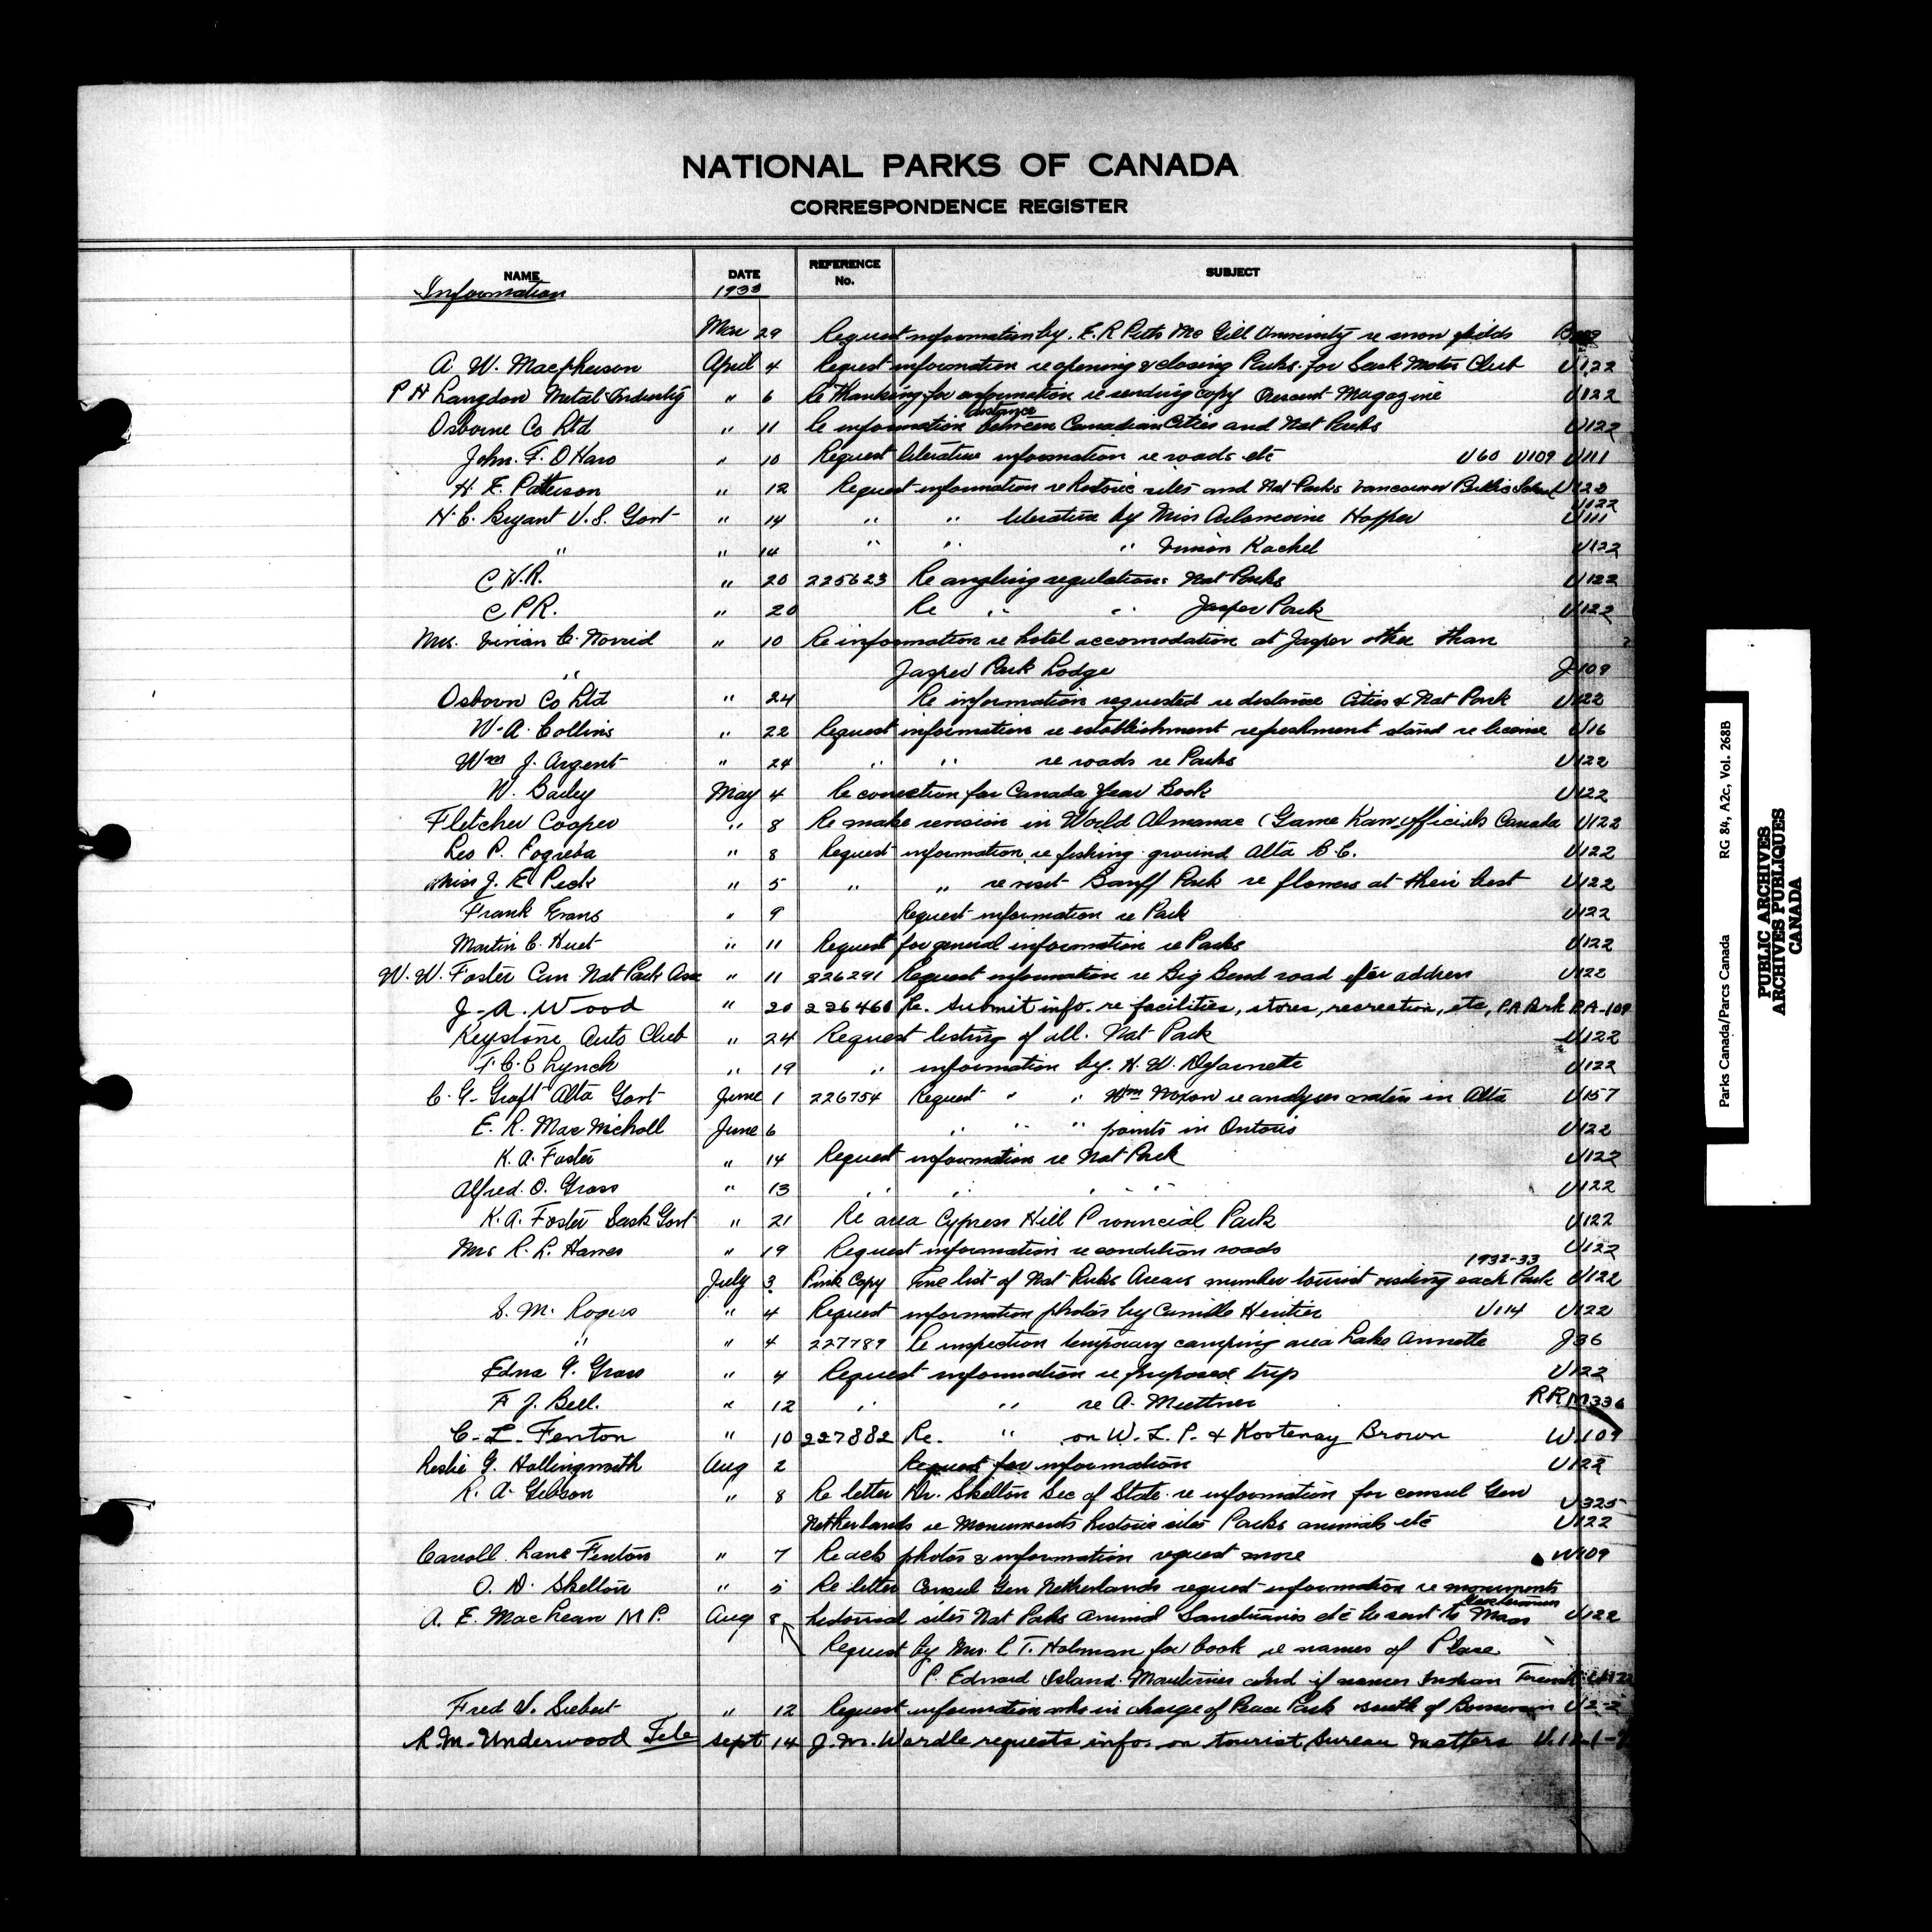 NATIONAL PARKS OF CANADA
CORRESPONDENCE REGISTER
NAME DATE REFERENCE No. SUBJECT
Information 1933
Mar 29 Request information by. E. R Mc Gill University re snow B
A W. Macpherson April 4 Request information re opening & closing Parks. for Sask Motor Club U122
P H Langdon Metal Industry " 6 Re Thanking for information re sending copy Crescent Magazine U122
Osborne Co Ltd " 11 Re information distance between Canadian Cities and Nat Parks U122
John. F. O Hara " 10 Request literature information re roads etc U60 U109 U111
H. E. Patterson " 12 Request information re Historic sites and Nat Parks Vancouver Public School U122
H. C. Bryant U.S. Govt " 14 " " literature by Miss Hopper U122 U111
" " 14 " " " Kachel U122
C N.R. " 20 225623 Re angling regulations Nat Parks U122
C P.R. " 20 Re " " Jasper Park U122
Mrs. Vivian C. Norrid " 10 Re information re hotel accomodation at Jasper other than
" Jasper Park Lodge J109
Osborn Co Ltd " 24 Re information requested re distance Cities & Nat Park U122
W. A. Collins " 22 Request information re establishment refreshment stand re license U16
Wm J. Argent " 24 " " re roads re Parks U122
W. Bailey May 4 Re correction for Canada Year Book U122
Fletcher Cooper " 8 Re make revision in World Almanac (Game Law officials Canada U122
Leo P. Pogreba " 8 Request information re fishing ground Alta B.C. U122
Miss J. E Peck " 5 " " re visit Banff Park re flowers at their best U122
Frank Evans " 9 Request information re Park U122
Martin C. Huet " 11 Request for general information re Parks U122
W. W. Foster Can Nat Park Ass " 11 226291 Request information re Big Bend road for address U122
J. A. Wood " 20 226460 Re. Submit info. re facilities, stores, recreation, etc, P.A Park P.A-109
Keystone Auto Club " 24 Request listing of all. Nat Park U122
F. C. C Lynch " 19 " information by. H. W. Dejarnette U122
C. G. Groft Alta Govt June 1 226754 Request " " Wm Moxon re analyses waters in Alta U157
E. R. MacNicholl June 6 " " " points in Ontario U122
K. A. Foster " 14 Request information re Nat Park U122
Alfred. O. Gross " 13 " " " " " U122
K. A. Foster Sask Govt " 21 Re area Cypress Hill Provincial Park U122
Mrs R. L. Hawes " 19 Request information re condition roads U122
July 3 Pink Copy list of Nat Parks Areas number tourist visiting each Park 1932-33 U122
S. M. Rogers " 4 Request information photos by Camille Heritier U114 U122
" " 4 227789 Re inspection temporary camping area Lake Annette J36
Edna G. Gross " 4 Request information re proposed trip U122
F J. Bell. " 12 " " re A. Muttner RRM336
C. L. Fenton " 10 227882 Re. " on W. L. P. & Kootenay Brown W.109
Leslie G. Hollingworth Aug 2 Request for information U122
R. A. Gibson " 8 Re letter Dr. Skelton Sec of State re information for consul Gen U325
Netherlands re Monuments historic sites Parks animals etc U122
Carroll Lane Fenton " 7 Re ack photos & information request more W109
O. D. Skelton " 5 Re letter Consul Gen Netherlands request information re monuments
A. E. MacLean M P. Aug 8 historical sites Nat Parks Animal Sanctuaries etc be sent to U122
Request by Mrs. L T. Holman for book re names of Place
P. Edward Island. Maritimes and if names Indian French U122
Fred V. Siebert " 12 Request information who in charge of Peace Park south of Boissevain U2-2
R.M. Underwood Tele Sept 14 J. M. Wardle requests info. on tourist bureau matters U.121-
Parks Canada/Parcs Canada RG 84, A2c, Vol. 268B
PUBLIC ARCHIVES
ARCHIVES PUBLIQUES
CANADA